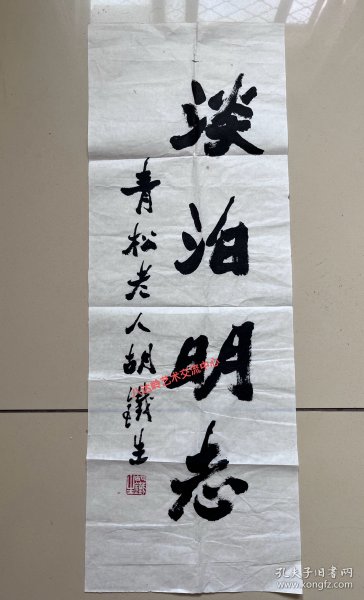 淡泊明志
青松老人胡鐵生
艺术交流中心
孔夫子旧书网
www.kongfz.com